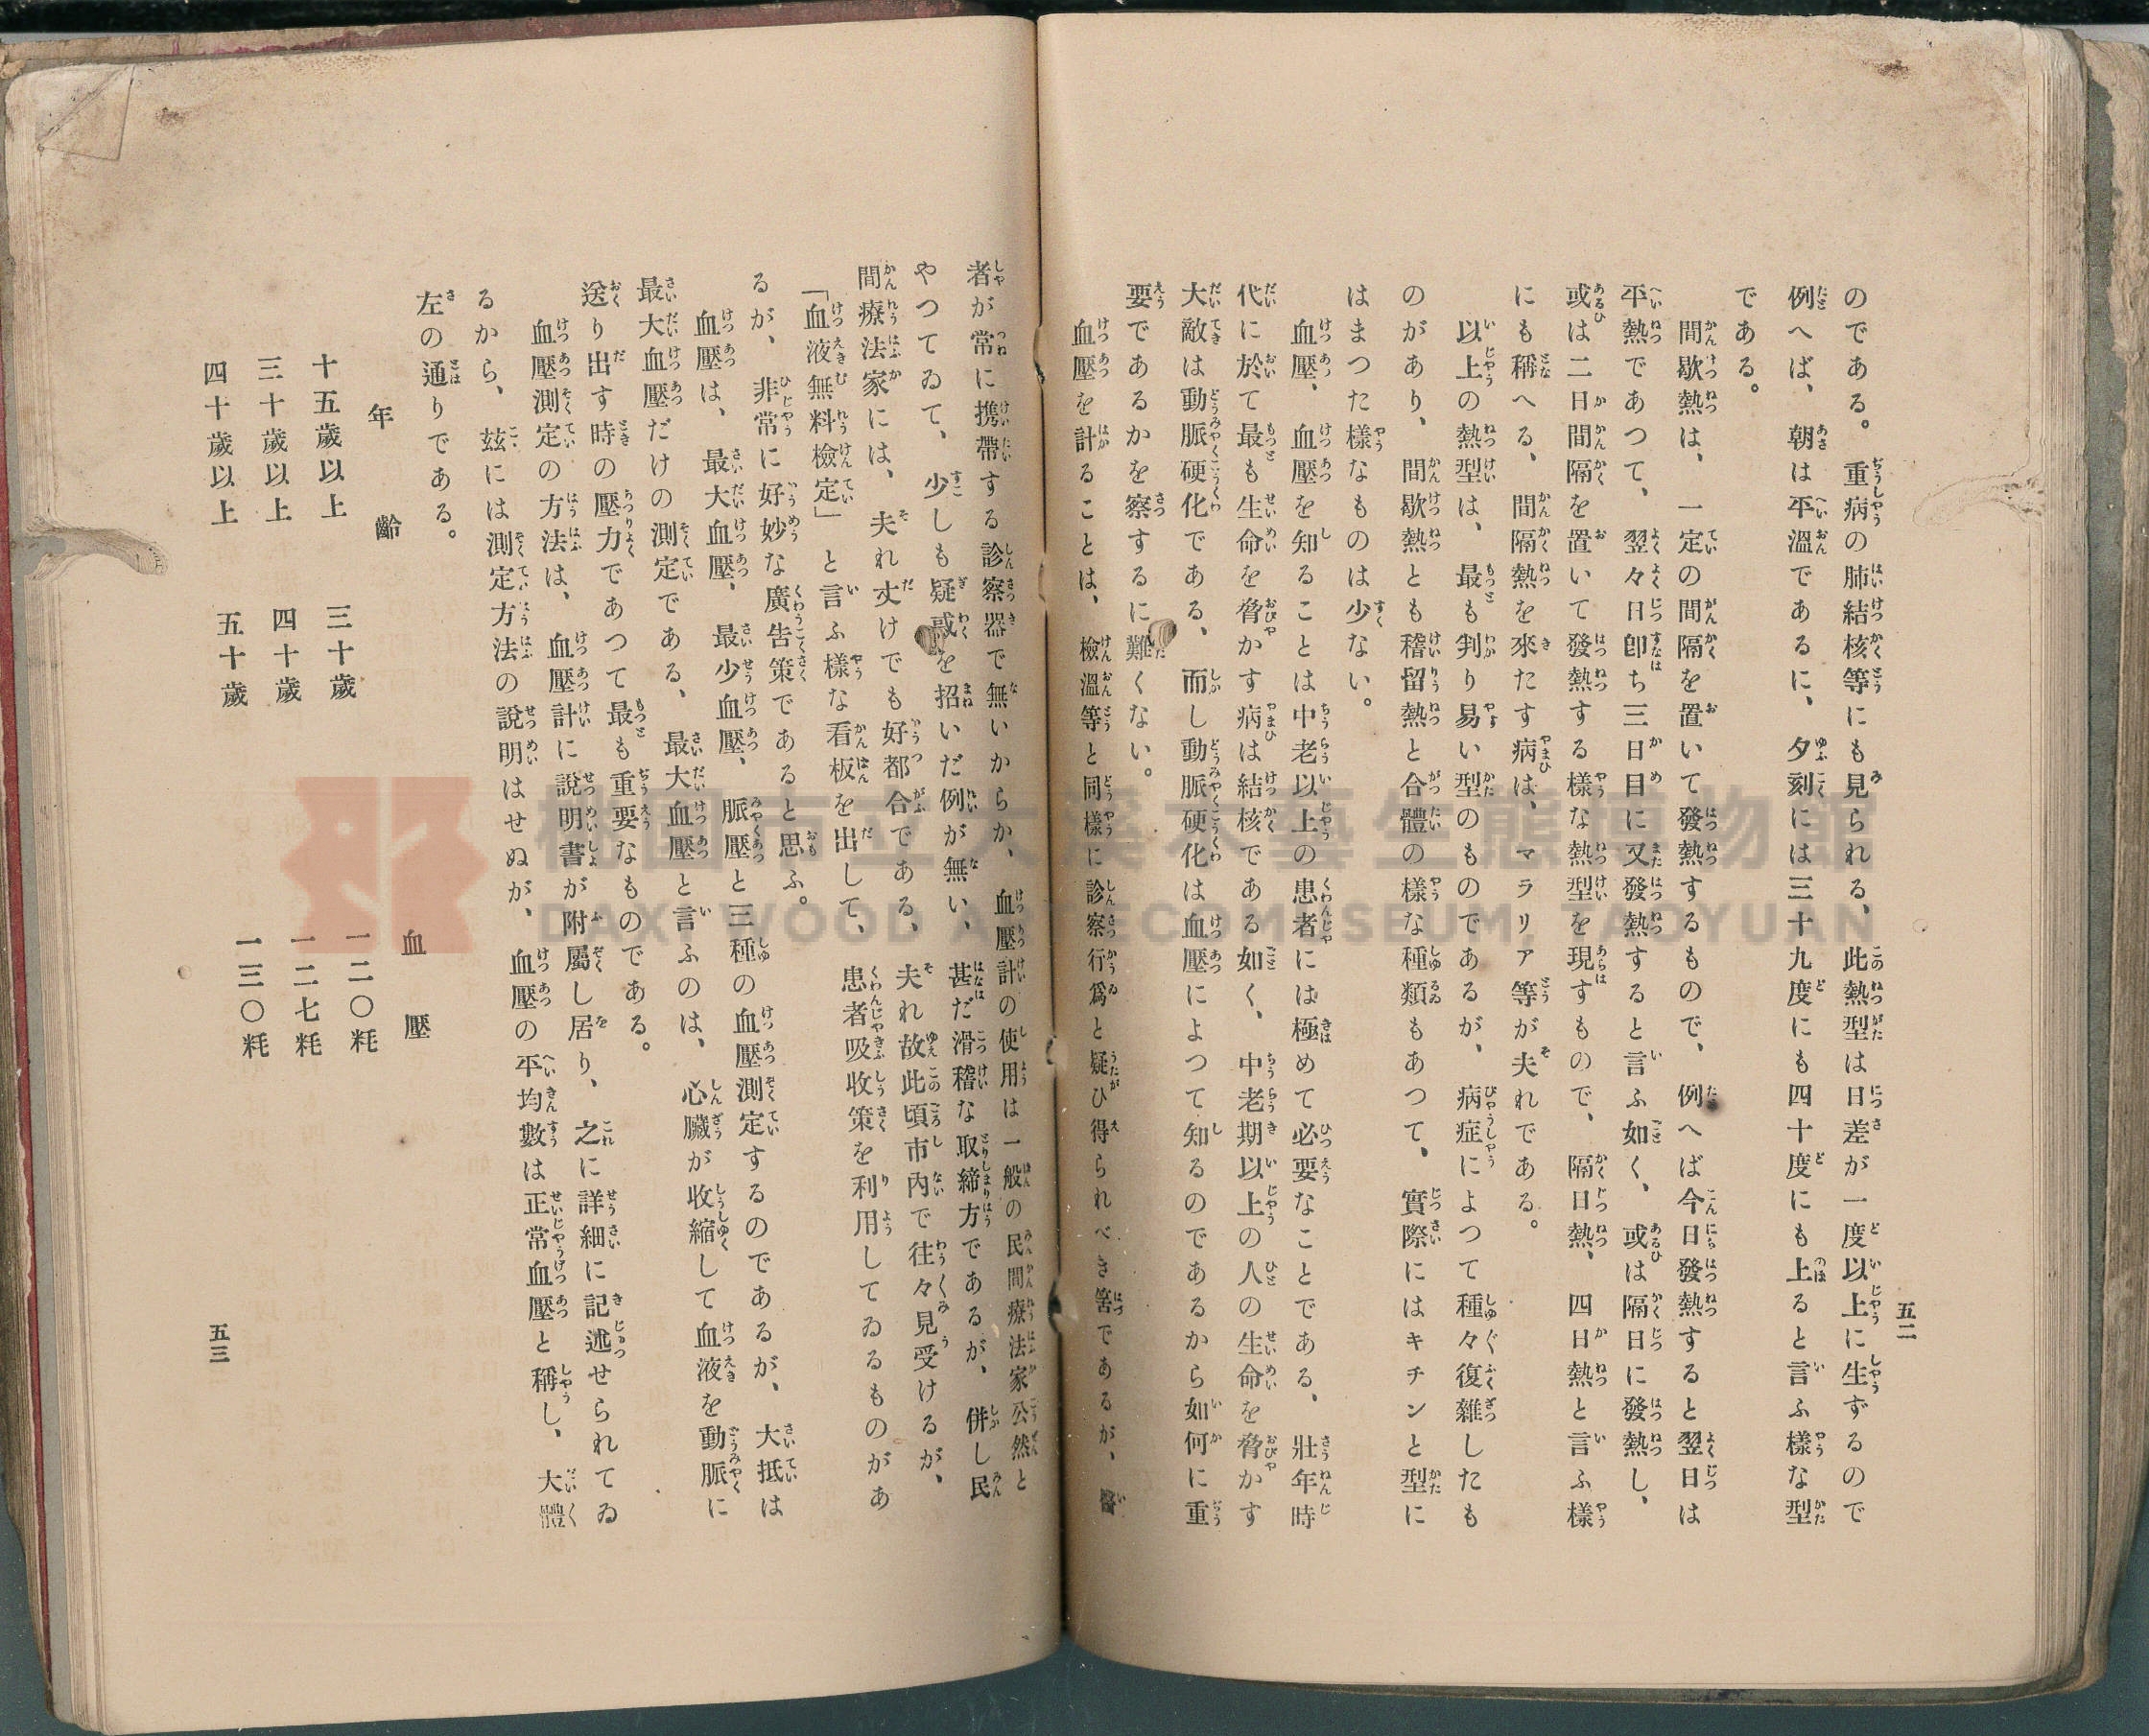 五二
のである。重病の肺結核等にも見られる、此熱型は日差が一度以上に生ずるので
例へば、朝は平溫であるに、夕刻には三十九度にも四十度にも上ると言ふ樣な型
である。
間歇熱は、一定の間隔を置いて發熱するもので、例へば今日發熱すると翌日は
平熱であつて、翌々日卽ち三日目に又發熱すると言ふ如く、或は隔日に發熱し、
或は二日間隔を置いて發熱する樣な熱型を現すもので、隔日熱、四日熱と言ふ樣
にも稱へる、間隔熱を來たす病は、マラリア等が夫れである。
以上の熱型は、最も判り易い型のものであるが、病症によつて種々復雜したも
のがあり、間歇熱とも稽留熱と合體の樣な種類もあつて、實際にはキチンと型に
はまつた樣なものは少ない。
血壓、血壓を知ることは中老以上の患者には極めて必要なことである、壯年時
代に於て最も生命を脅かす病は結核である如く、中老期以上の人の生命を脅かす
大敵は動脈硬化である、而し動脈硬化は血壓によつて知るのであるから如何に重
要であるかを察するに難くない。
血壓を計ることは、檢溫等と同樣に診察行爲と疑ひ得られべき筈であるが、醫
者が常に携帶する診察器で無いからか、血壓計の使用は一般の民間療法家公然と
やつてゐて、少しも疑惑を招いだ例が無い、甚だ滑稽な取締方であるが、併し民
間療法家には、夫れ丈けでも好都合である、夫れ故此頃市內で往々見受けるが、
「血液無料檢定」と言ふ樣な看板を出して、患者吸收策を利用してゐるものがあ
るが、非常に好妙な廣告策であると思ふ。
血壓は、最大血壓、最少血壓、脈壓と三種の血壓測定するのであるが、大抵は
最大血壓だけの測定である、最大血壓と言ふのは、心臟が收縮して血液を動脈に
送り出す時の壓力であつて最も重要なものである。
血壓測定の方法は、血壓計に說明書が附屬し居り、之に詳細に記述せられてゐ
るから、玆には測定方法の說明はせぬが、血壓の平均數は正常血壓と稱し、大體
左の通りである。
年齡 血壓
十五歲以上 三十歲 一二〇粍
三十歲以上 四十歲 一二七粍
四十歲以上 五十歲 一三〇粍
五三
桃園市立大溪木藝生態博物館
DAXI WOOD ART ECOMUSEUM, TAOYUAN